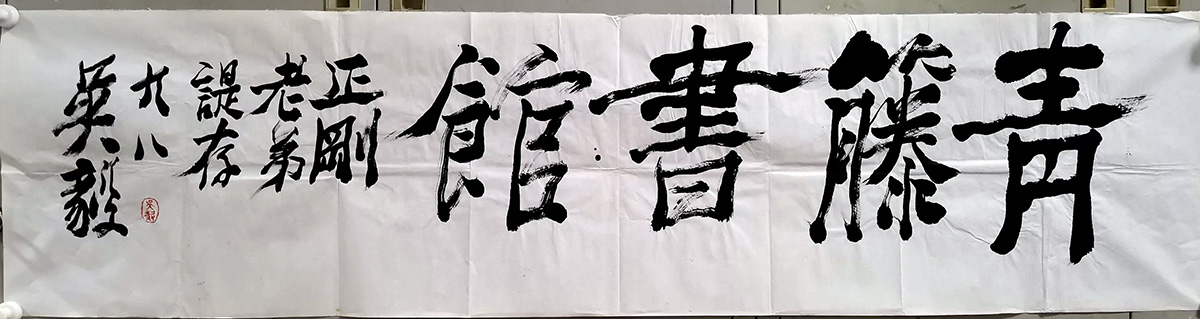 青籐書館
正剛
老弟
諟存
九八
吳毅